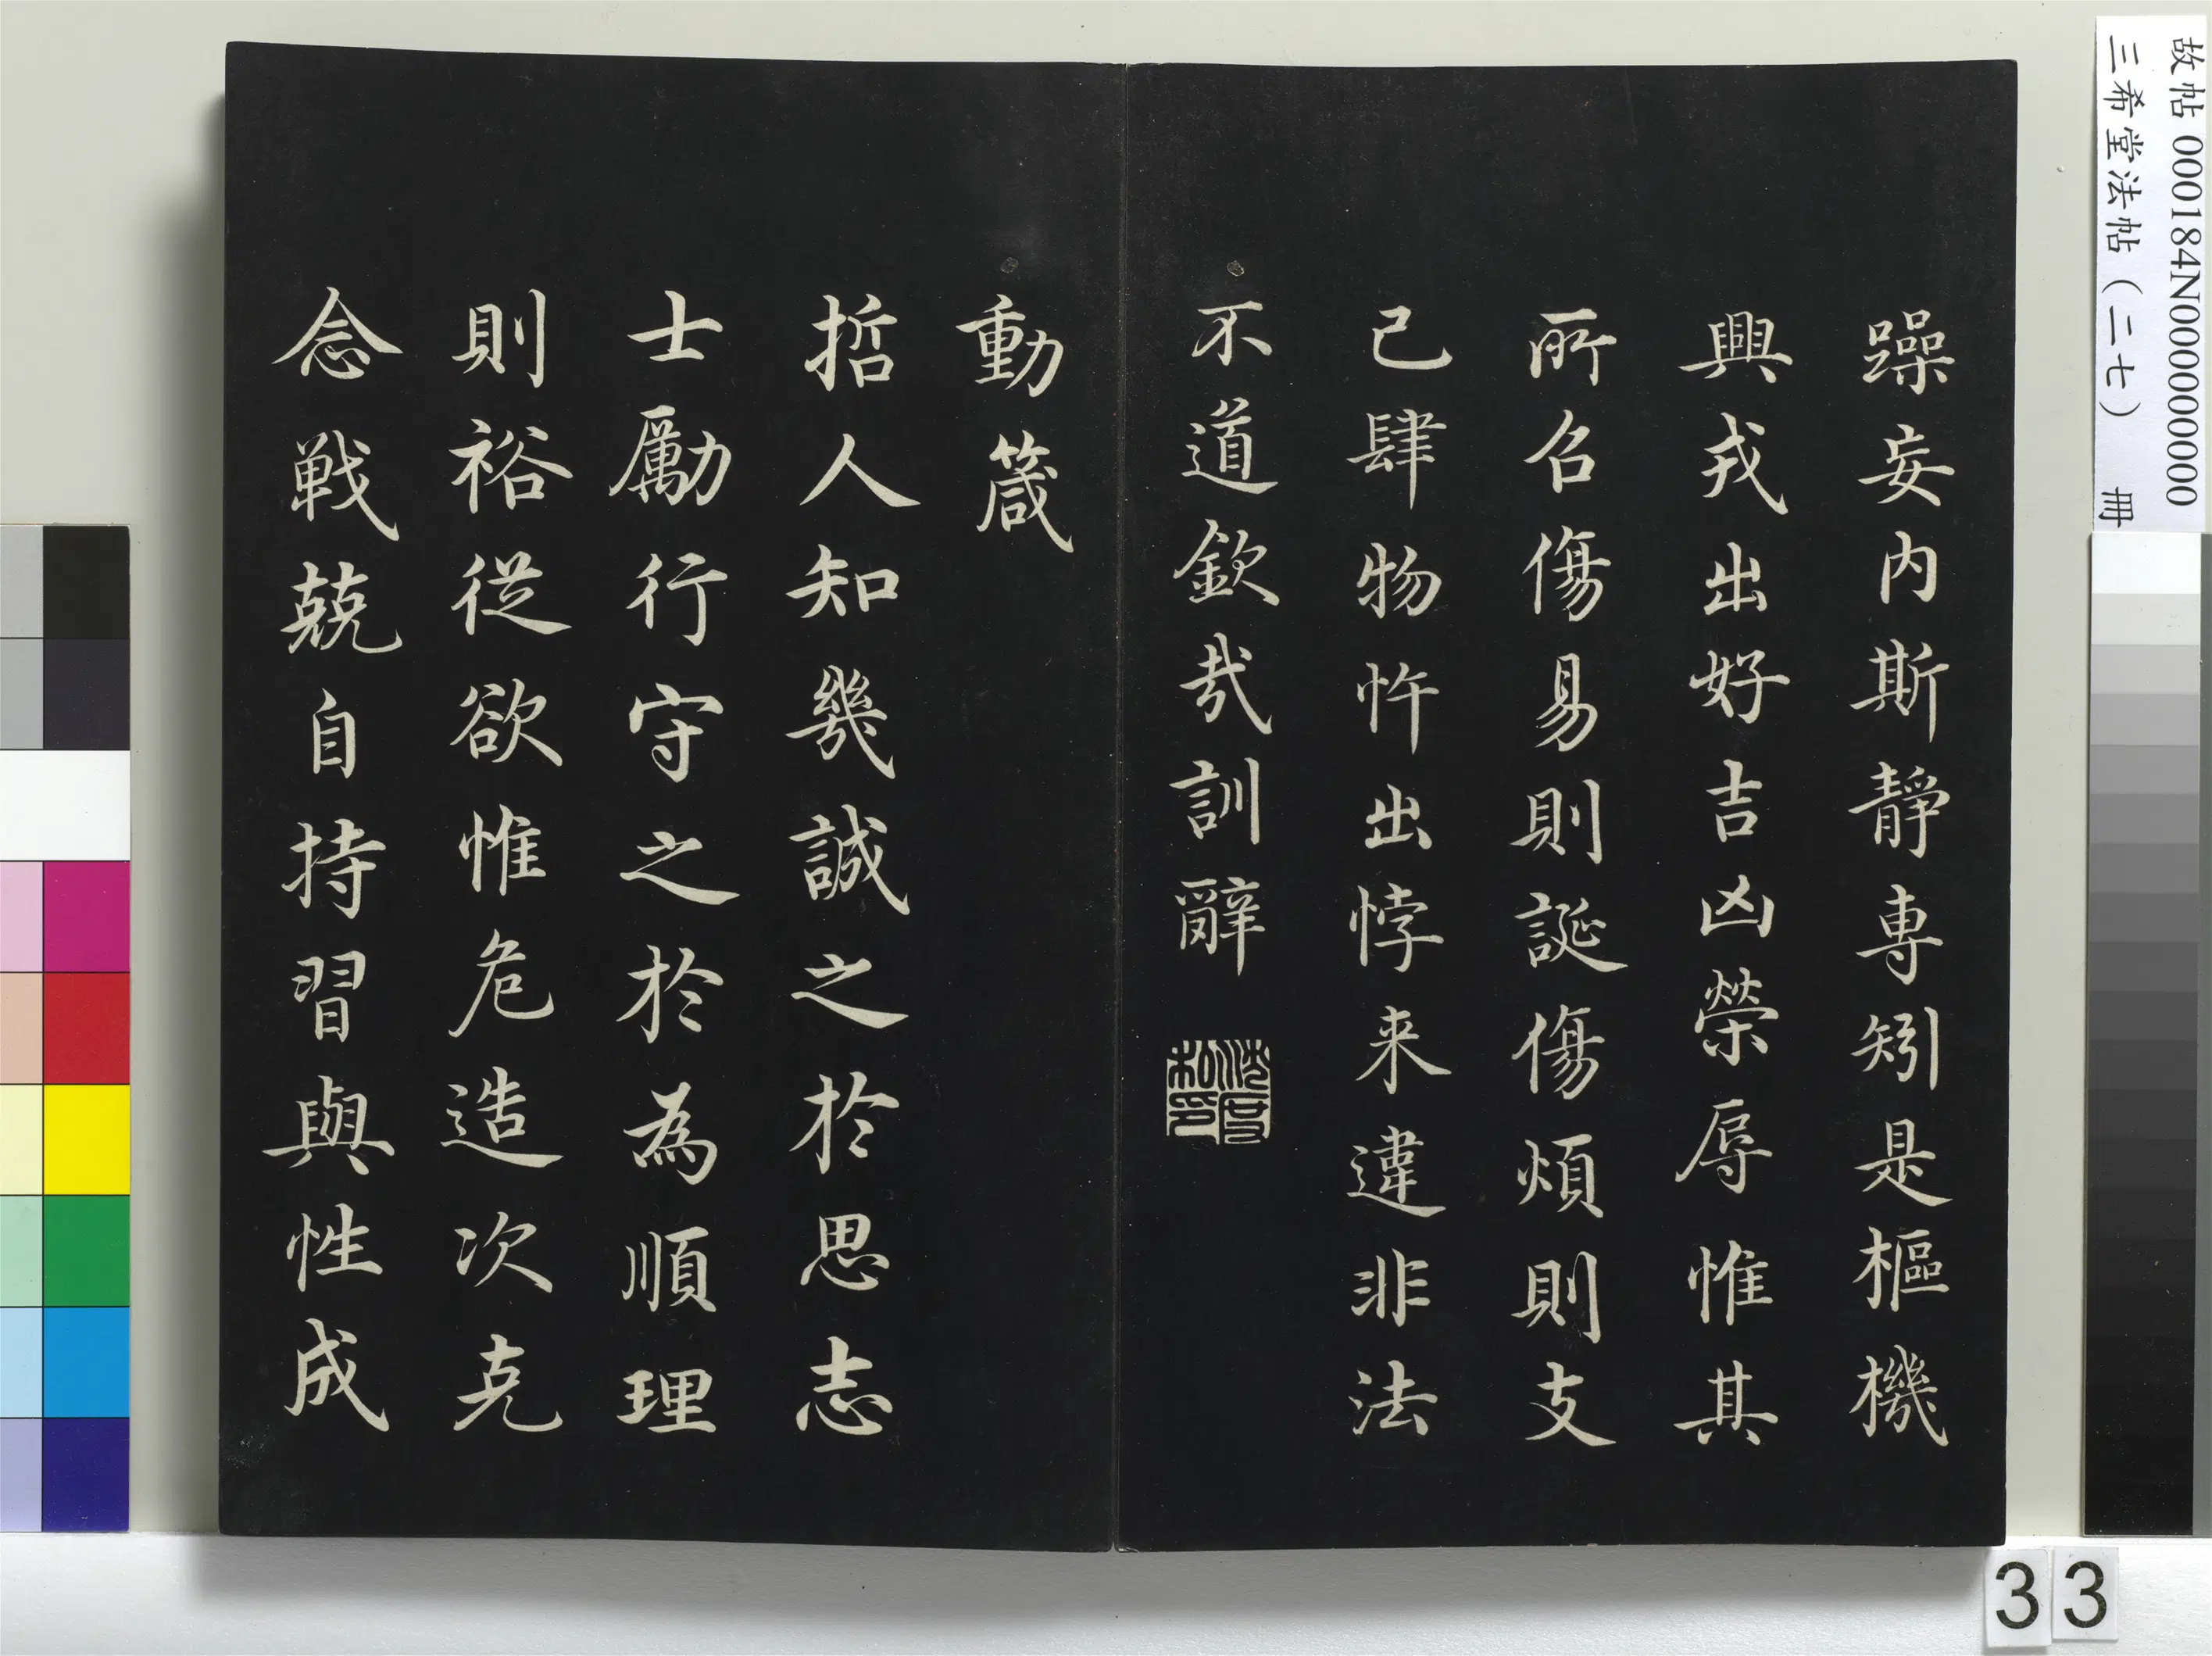 躁妄内斯靜専矧是樞機
興戎出好吉凶榮辱惟其
所召傷易則誕傷煩則支
己肆物忤出悖来違非法
不道欽哉訓辭
動箴
哲人知幾誠之於思志
士勵行守之於為順理
則裕從欲惟危造次克
念戦兢自持習與性成
故帖 000184N000000000
三希堂法帖(二七) 冊
33